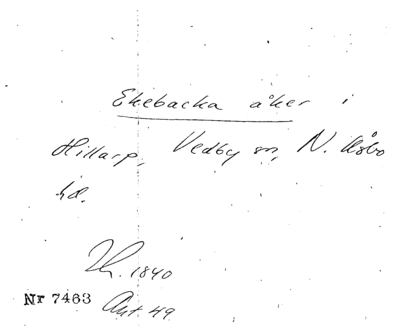 Ekebacka åker i
Hillarp, Vedby sn, N. Åsbo
hd.
1840
Nr 7463 Ant. 49